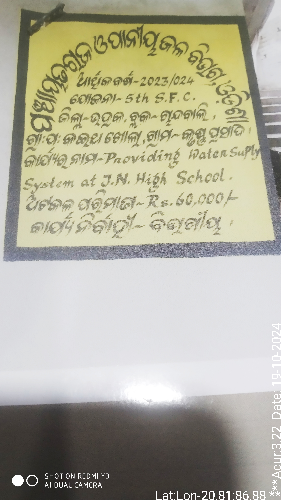 ପଞ୍ଚାୟତିରାଜ ଓ ପାନୀୟ ଜଳ ବିଭାଗ, ଓଡ଼ିଶା
ଆର୍ଥିକ ବର୍ଷ - 2023/024
ଯୋଜନା - 5th S.F.C.
ଜିଲ୍ଲା - ଭଦ୍ରକ, ବ୍ଲକ - ଚାନ୍ଦବାଲି,
ଗ୍ରା.ପଂ. ଗ୍ରାମ - କୃଷ୍ଣ ପ୍ରସାଦ
କାର୍ଯ୍ୟର ନାମ - Providing Water Suply
System at J.N. High School.
ଅଟକଳ ପରିମାଣ - Rs. 60,000/-
କାର୍ଯ୍ୟ ନିର୍ବାହୀ - ବିଭାଗୀୟ.
SHOT ON REDMI Y3
AI DUAL CAMERA
Lat:Lon-20.81:86.88
***Acur:3.22 Date:19-10-2024